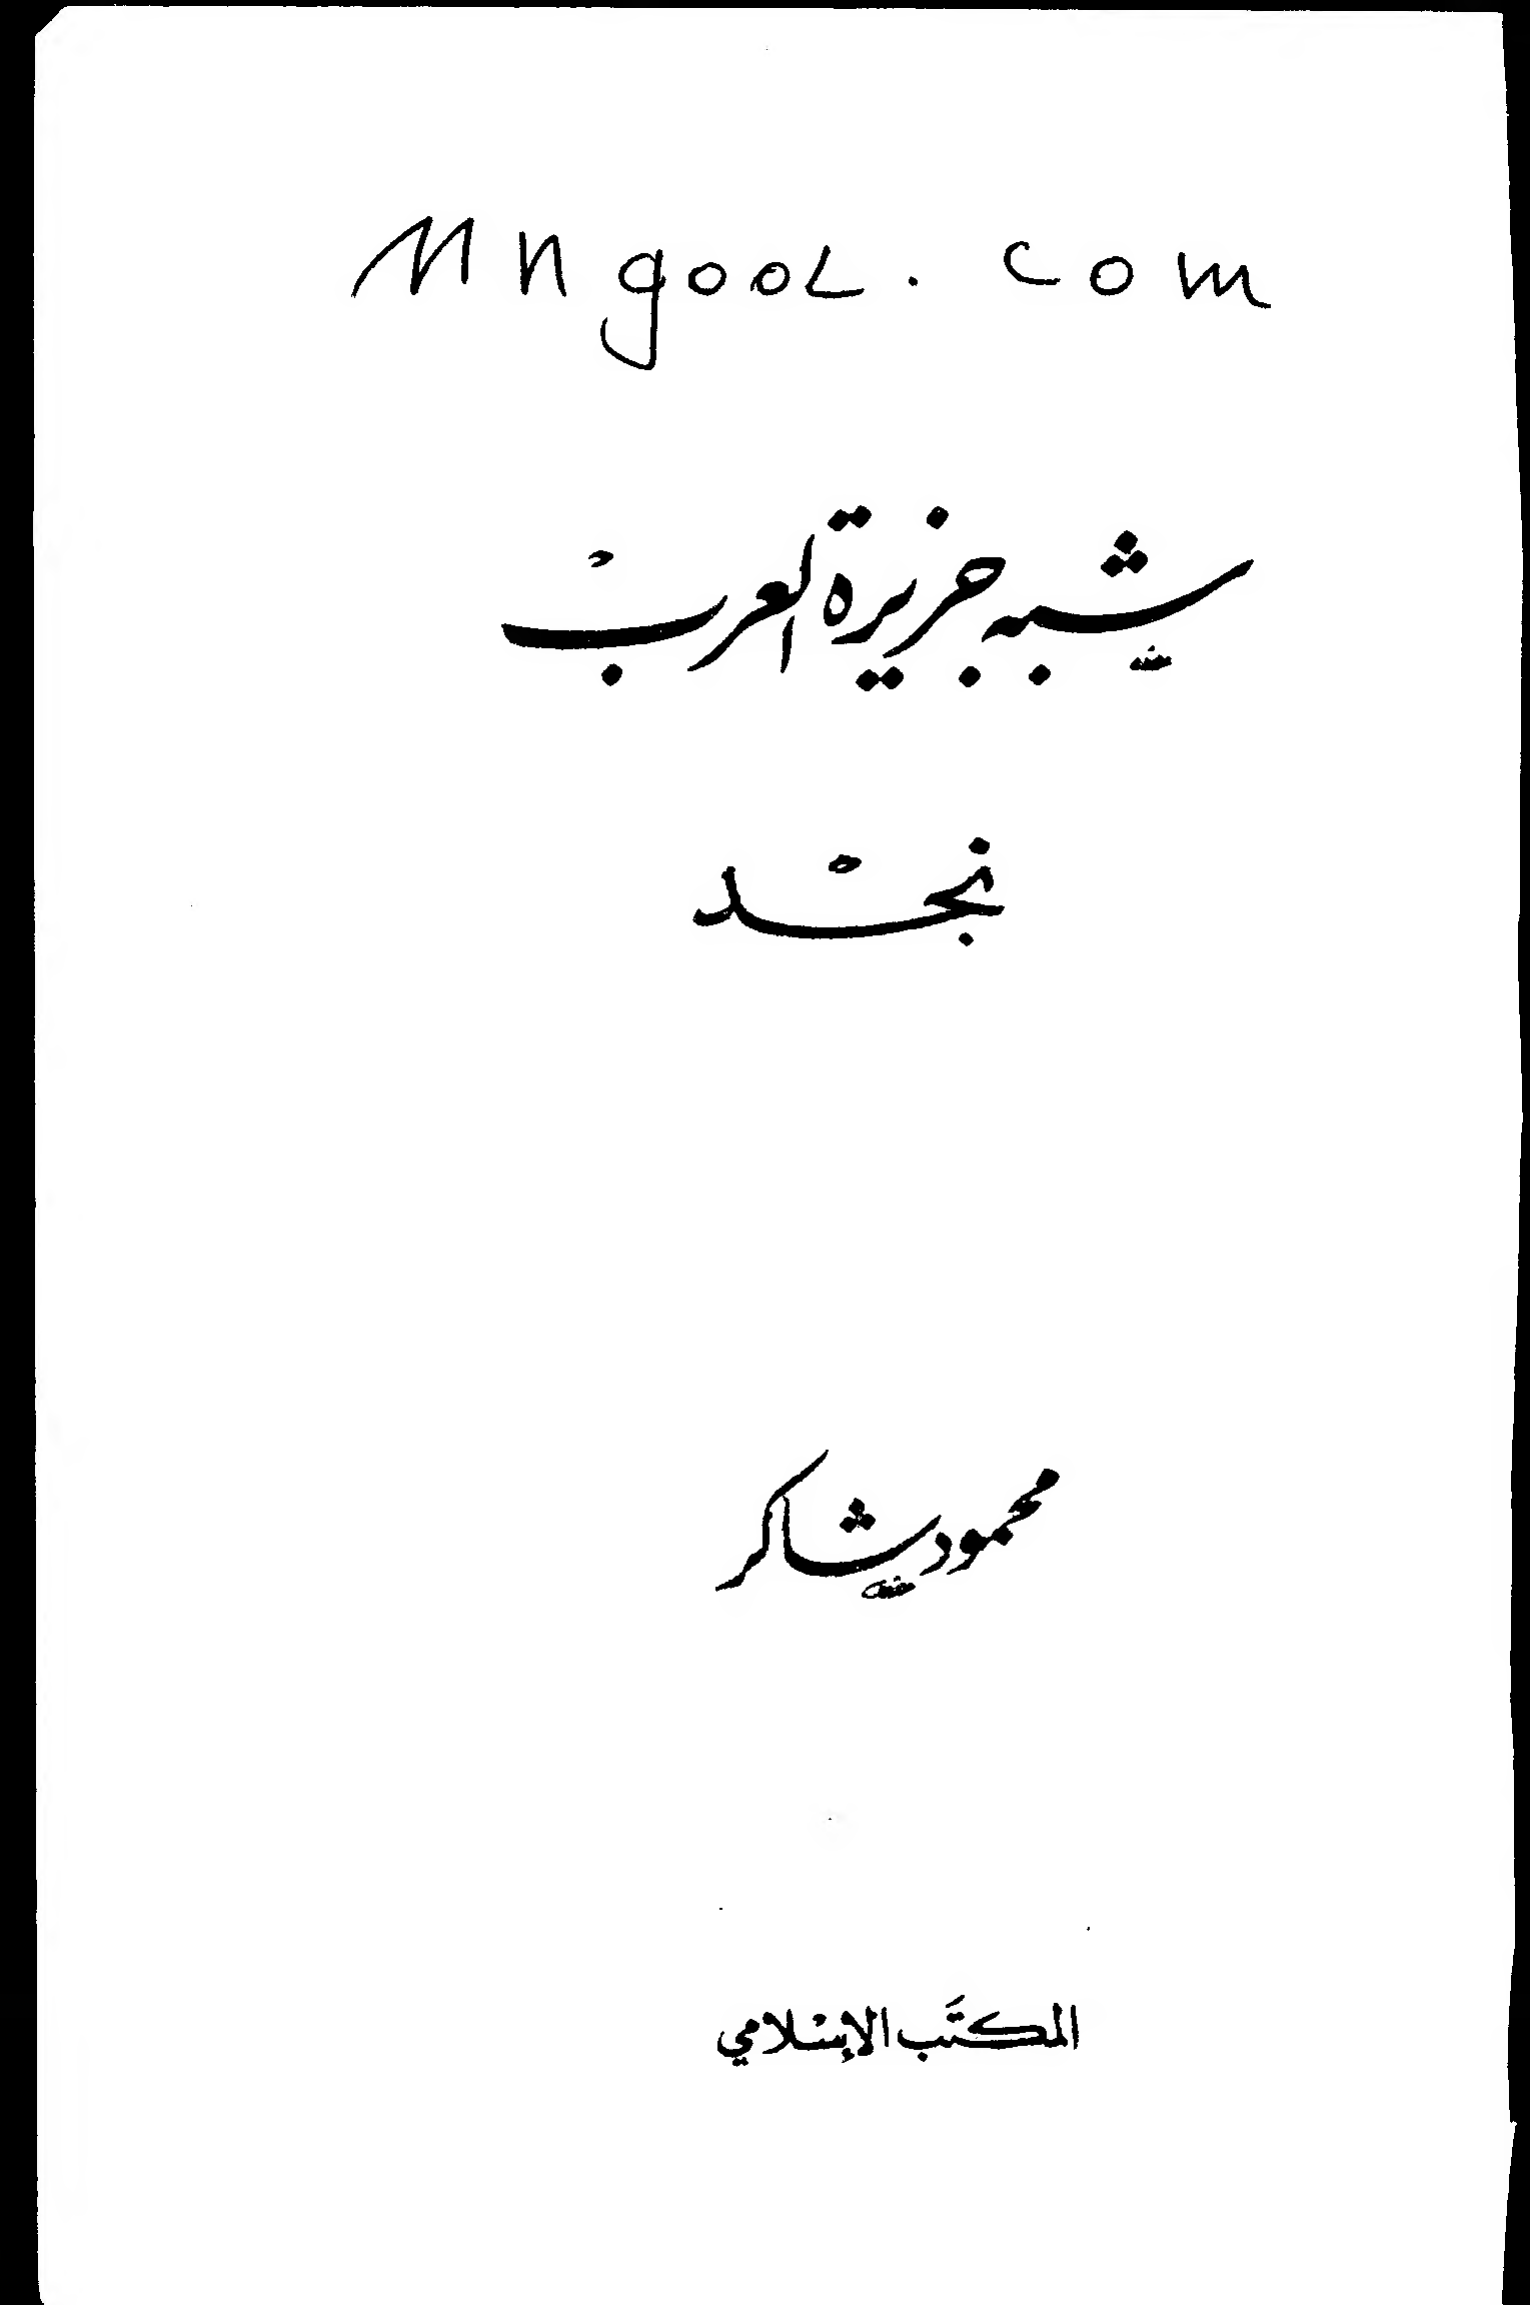 Mngool.com
شبه جزيرة العربْ
نجْد
محمود شاكر
المكتَب الإسْلامي